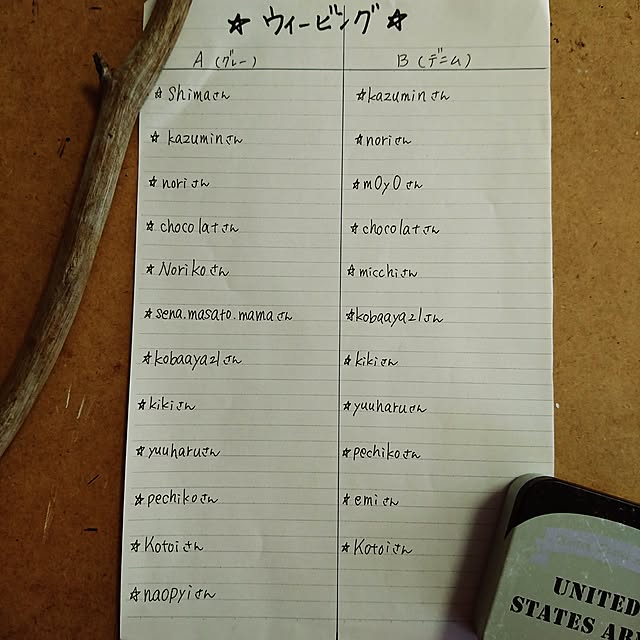 ☆ ウィービング ☆
A (グレー)
☆ Shimaさん
☆ kazuminさん
☆ noriさん
☆ chocolatさん
☆ Norikoさん
☆ sena.masato.mamaさん
☆ kobaaya21さん
☆ kikiさん
☆ yuuharuさん
☆ pechikoさん
☆ Kotoiさん
☆ naopyiさん
B (デニム)
☆ kazuminさん
☆ noriさん
☆ mOyOさん
☆ chocolatさん
☆ micchiさん
☆ kobaaya21さん
☆ kikiさん
☆ yuuharuさん
☆ pechikoさん
☆ emiさん
☆ Kotoiさん
UNITED
STATES AR